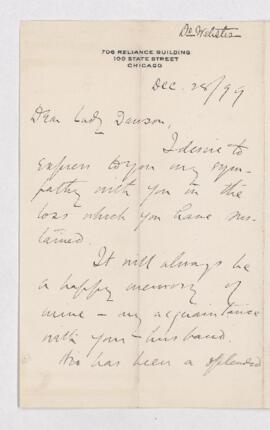 Dr Webster
706 RELIANCE BUILDING
100 STATE STREET
CHICAGO
Dec. 28/99
Dear Lady Dawson,
I desire to
express to you my sym-
pathy with you in the
loss which you have sus-
tained.
It will always be
a happy memory of
mine - my acquaintance
with your husband.
His has been a splendid